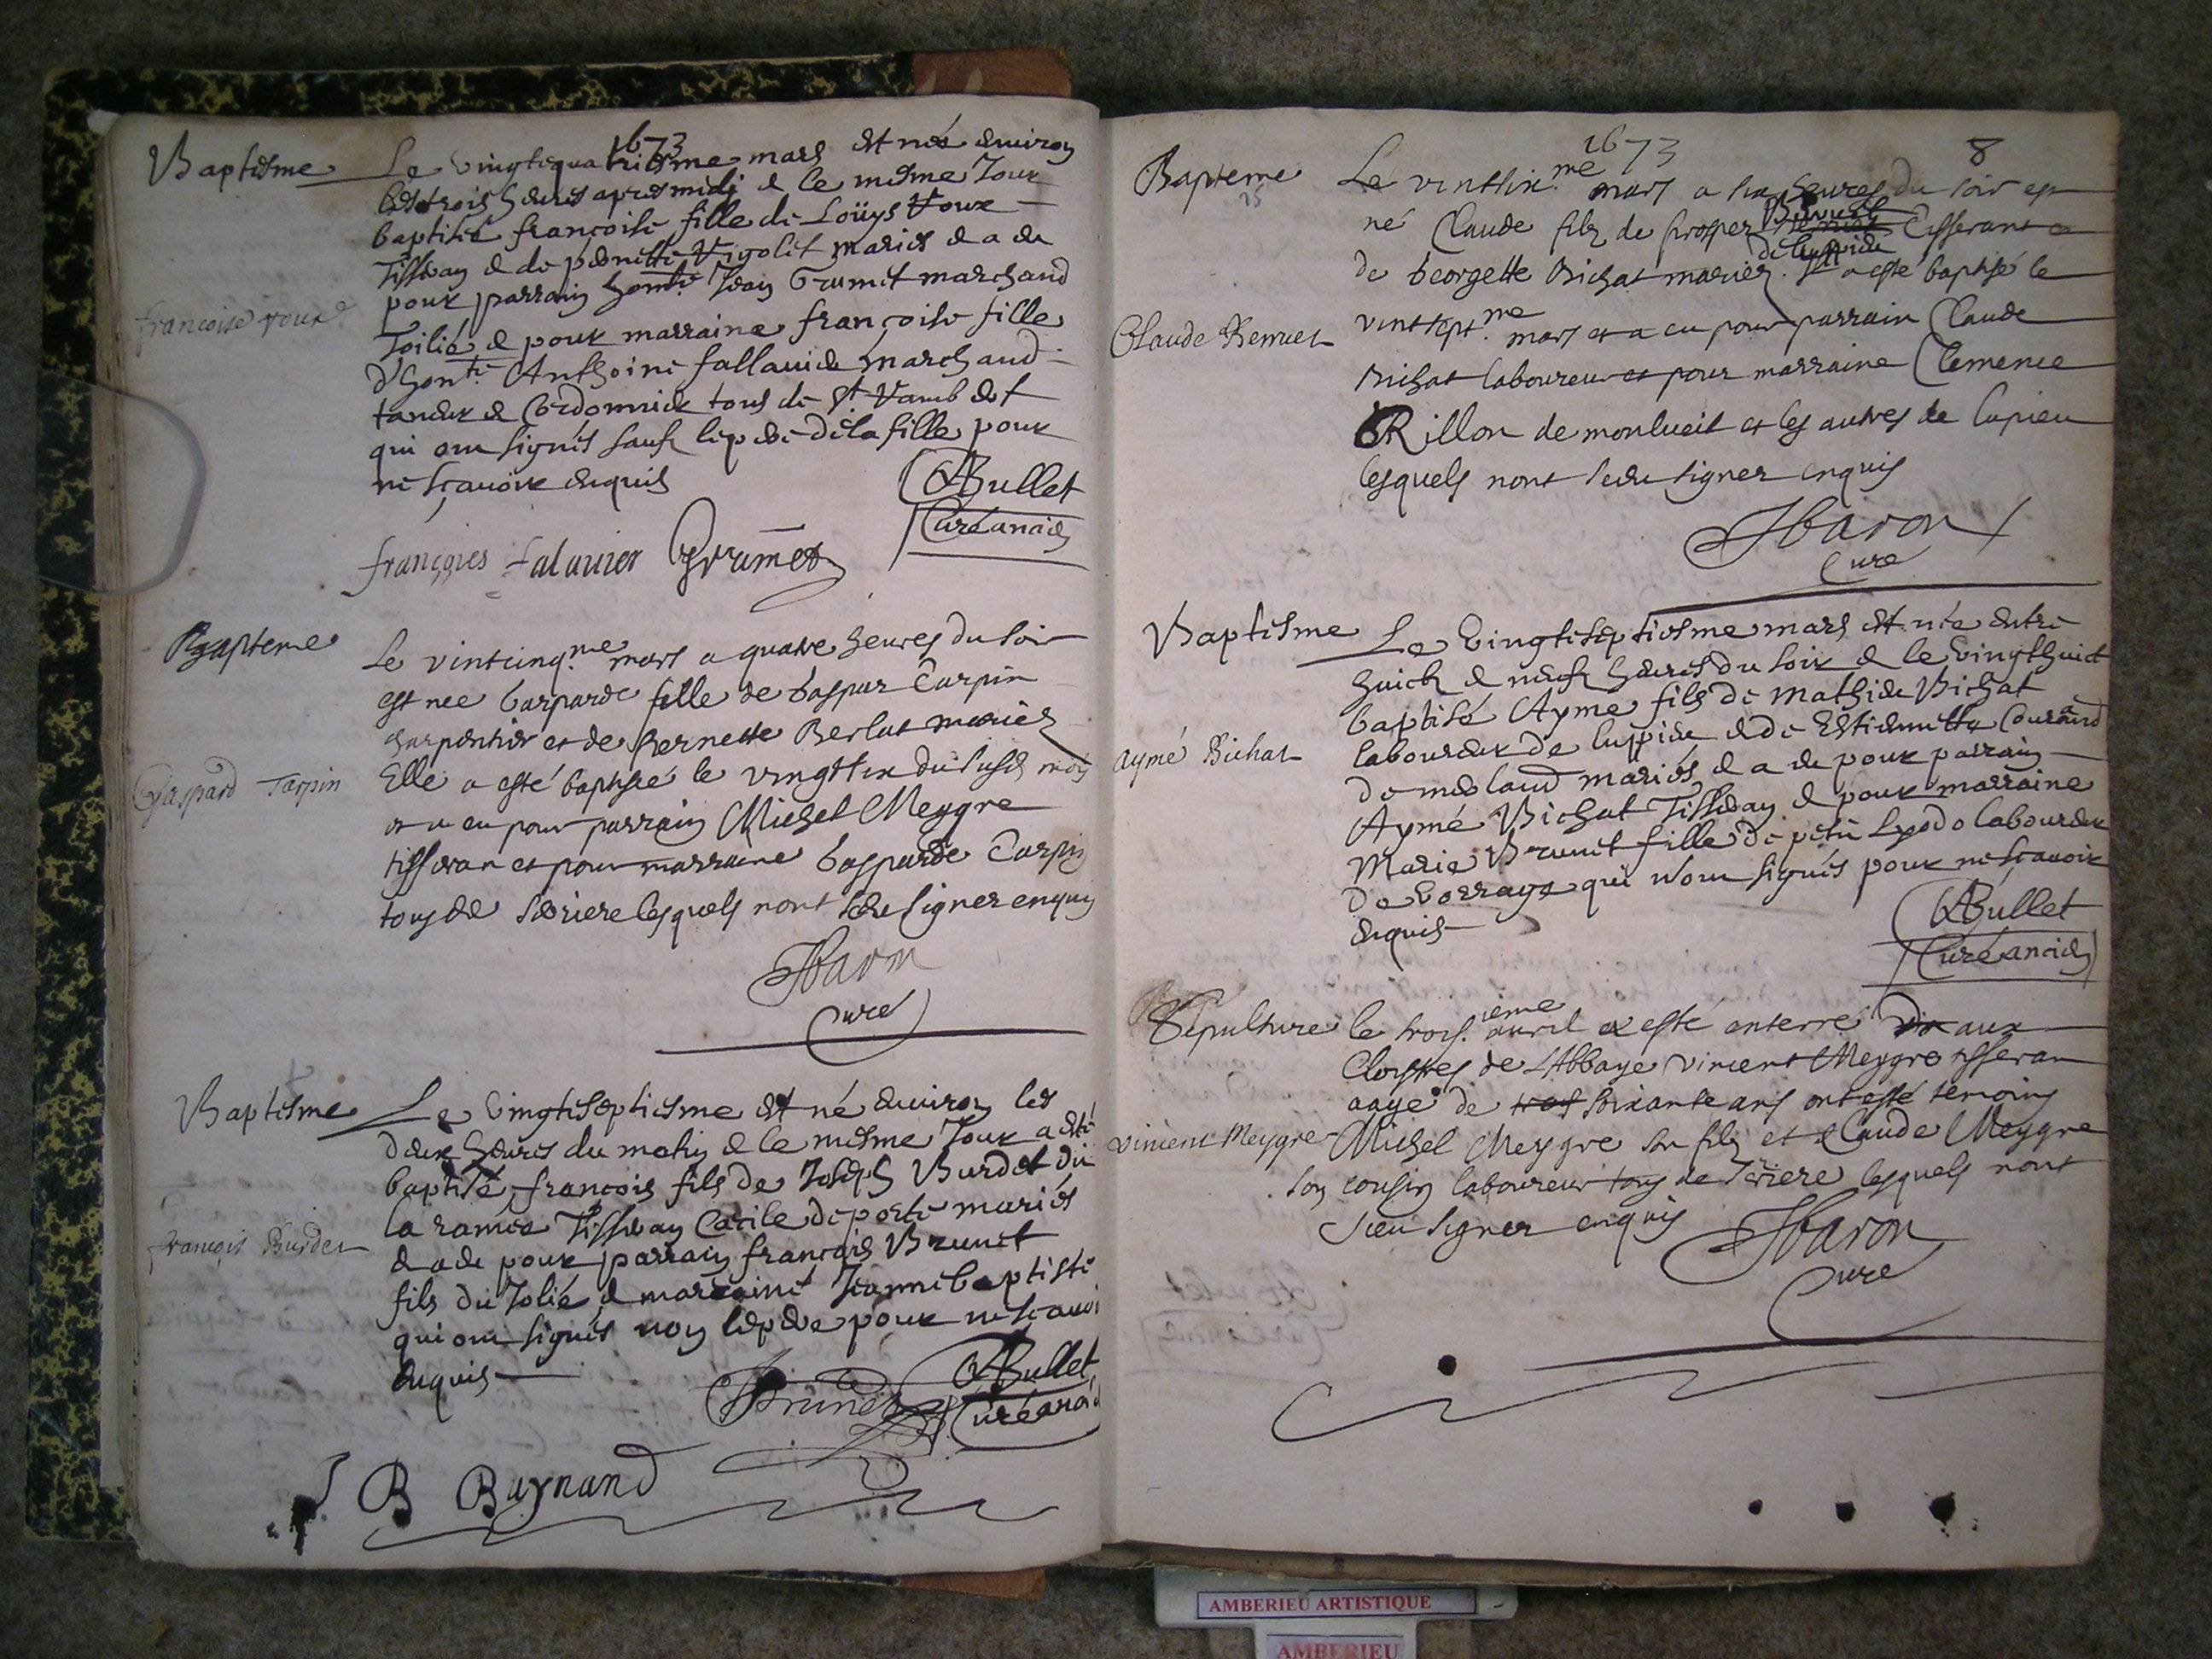 1673
Baptesme
Le vingtquatriesme mars est née environ
les trois heures apres midi & le mesme Jour
baptisée françoise fille de Loüys Voux
Tisseran & de pernette Vigolet mariés & a eu
pour parrain honble Jean Grumet marchand
françoise roux
Toilié & pour marraine françoise fille
d'honle Anthoine fallauier marchand
taneur & Cordonnier tous de St Rambert
qui ont signés sauf le pere de la fille pour
ne sçavoir enquis
ABullet
Curé ancien
françoies falauier Grumet
Bapteme
Le vintcinqme mars a quatre heures du soir
est nee Gasparde fille de Gaspar Tarpin
charpentier et de pernette Berlut mariés
Gaspard Tarpin
Elle a esté baptisée le vingtsix du susd mois
et a eu pour parrain Michel Meygre
tisseran et pour marraine Gasparde Tarpin
tous de Serriere lesquels nont sceu signer enquis
Jbaron
Curé
Baptesme
Le vingtseptiesme est né environ les
deux heures du matin & le mesme Jour a esté
baptisé françois fils de Joseph Burdet du
la ramée Tisseran Cecile deporte mariés
françois Burdet
& a eu pour parrain françois Brunet
fils du Jolié & marraine Jeanne baptiste
qui ont signés non le pere pour ne sçavoir
enquis
Brunet
ABullet
Curé ancien
B Raynand
1673
8
Bapteme
Le vintsixme mars a six heures du soir est
né Claude fils de prosper Tisserant et
de luppieu
de Georgette Bichat mariez. Il a esté baptisé le
Claude Remuet
vintseptme mars et a eu pour parrain Claude
Bichat laboureur et pour marraine Clemence
Rillon de monlueil et les autres de lupieu
lesquels nont sceu signer enquis
Jbaron
Cure
Baptesme
Le Vingtseptiesme mars est née entre
huict & neuf heures du soir & le vingthuict
baptisé Ayme fils de Mathieu Bichat
aymé Bichat
laboureur de luppieu & de Estiennette Courand
de mesland mariés & a eu pour parrain
Aymé Bichat Tisseran & pour marraine
Marie Brunet fille de petit Lyodo laboureur
de borraye qui n'ont signés pour ne sçavoir
enquis
ABullet
Curé ancien
Sepulture
le troisieme avril a esté enterré aux
Cloistres de l'Abbaye Vincent Meygre tisseran
aagé de soixante ans ont esté temoins
Vincent Meygre
Michel Meygre son fils et Claude Meygre
son cousin laboureur tous de Seriere lesquels nont
sceu signer enquis
Jbaron
Cure
AMBERIEU ARTISTIQUE
AMBERIEU